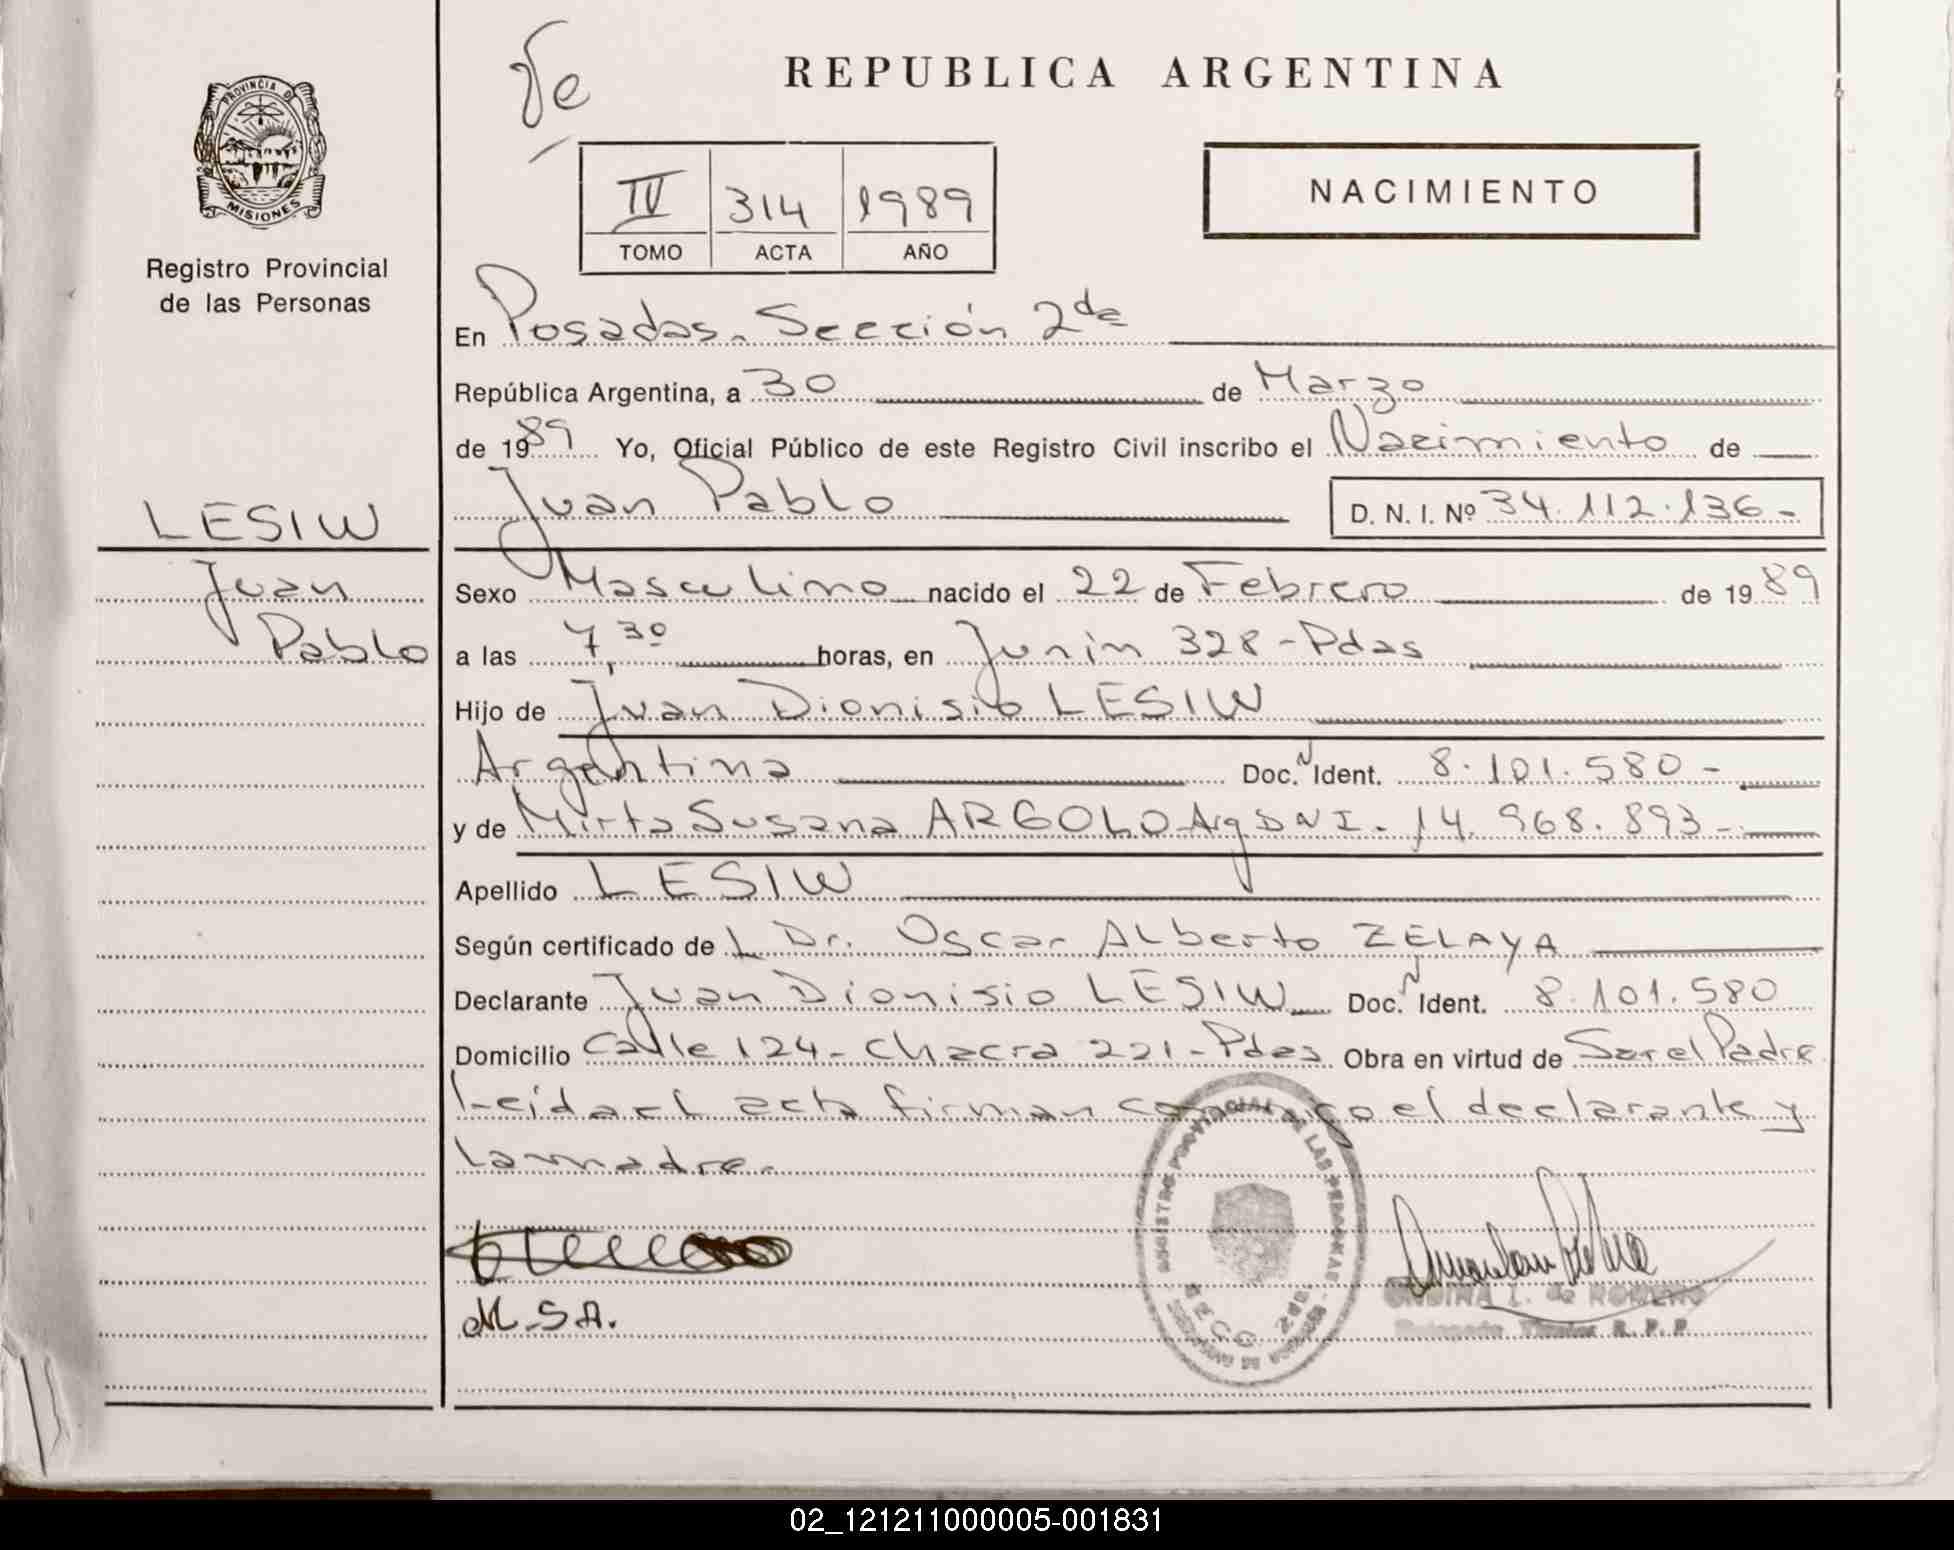 PROVINCIA DE
MISIONES
Registro Provincial
de las Personas
LESIW
Juan
Pablo
REPUBLICA ARGENTINA
IV 314 1989
TOMO ACTA AÑO
NACIMIENTO
En Posadas. Sección 2da
República Argentina, a 30 de Marzo
de 1989 Yo, Oficial Público de este Registro Civil inscribo el Nacimiento de
Juan Pablo D. N. I. Nº 34.112.136-
Sexo Masculino nacido el 22 de Febrero de 1989
a las 7,30 horas, en Junin 328-Pdas
Hijo de Juan Dionisio LESIW
Argentina Doc. Ident. 8.101.580-
y de Mirta Susana ARGOLO Arg DNI. 14.968.893-
Apellido LESIW
Según certificado de L Dr. Oscar Alberto ZELAYA
Declarante Juan Dionisio LESIW Doc. Ident. 8.101.580
Domicilio Calle 124- Chacra 221-Pdas Obra en virtud de Ser el Padre
Leida el acta firman conmigo el declarante y
la madre.
M.S.A.
REGISTRO PROVINCIAL DE LAS PERSONAS
SECC. 2da.
R. P. P.
02_121211000005-001831